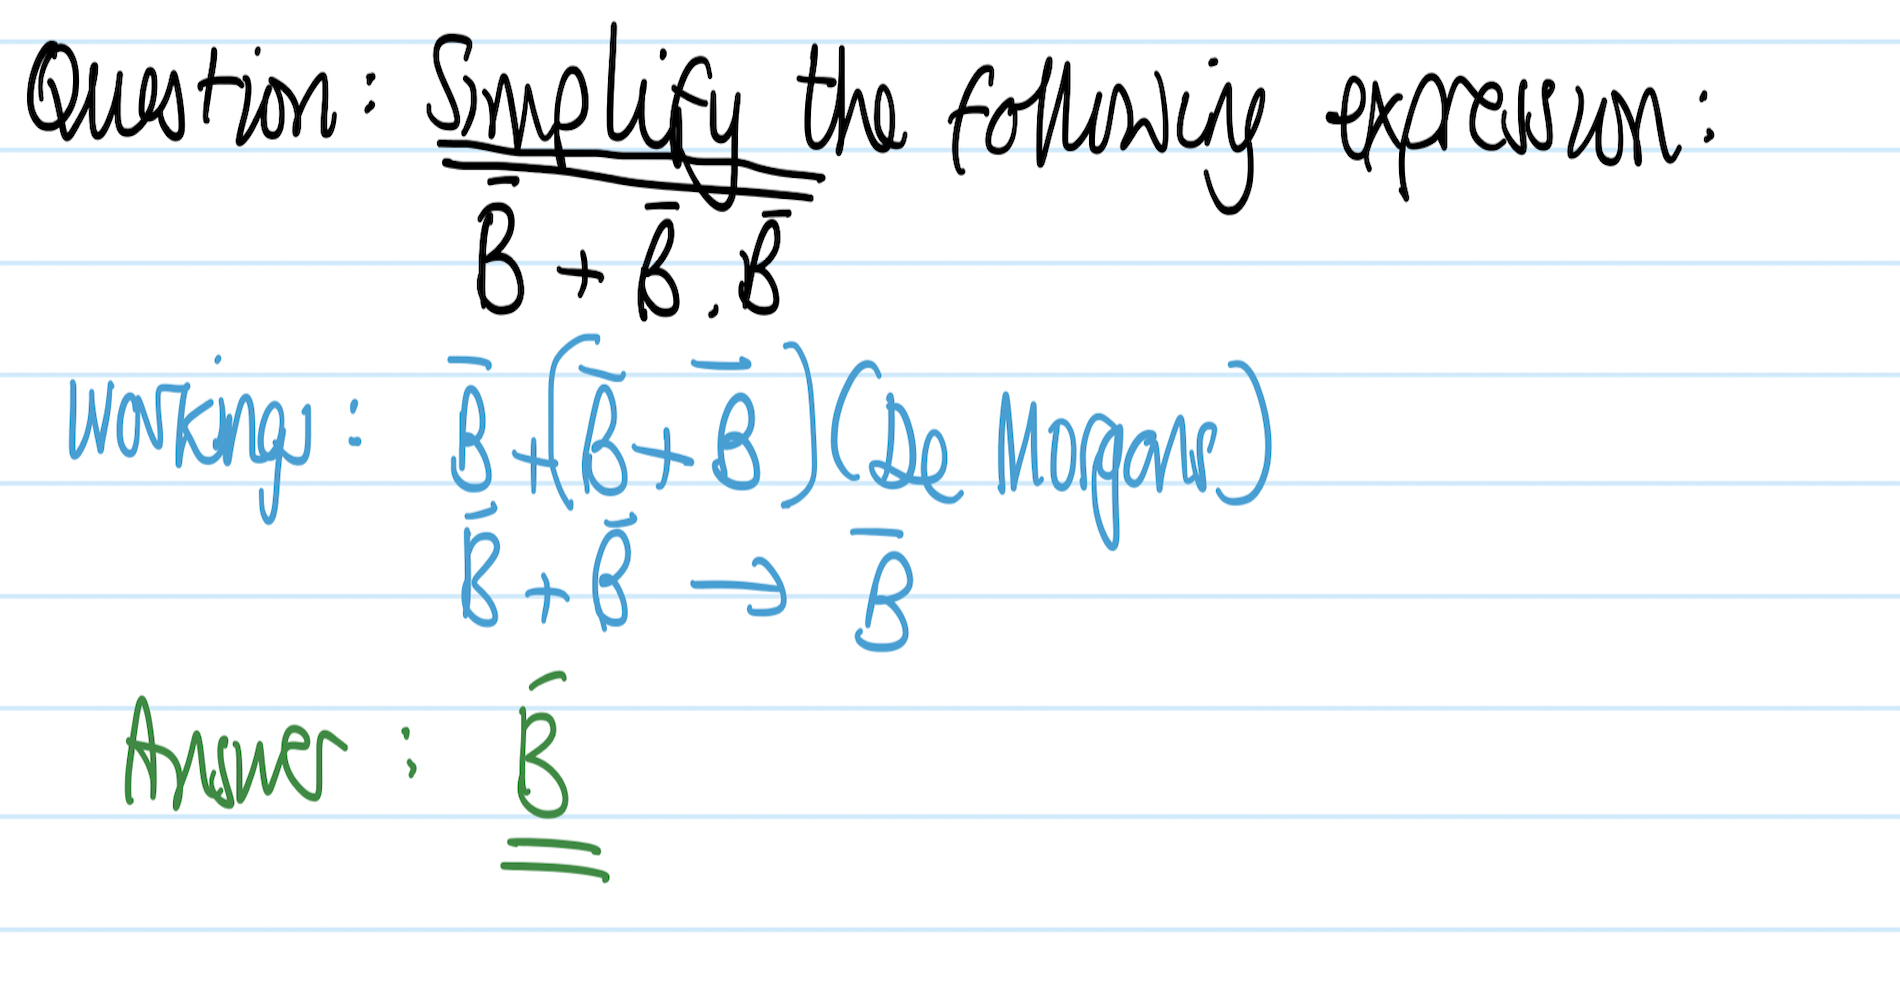 Question: Simplify the following expression:
B̄ + B̄ . B̄
Workings: B̄ + (B̄ + B̄) (De Morgans)
B̄ + B̄ → B̄
Answer: B̄